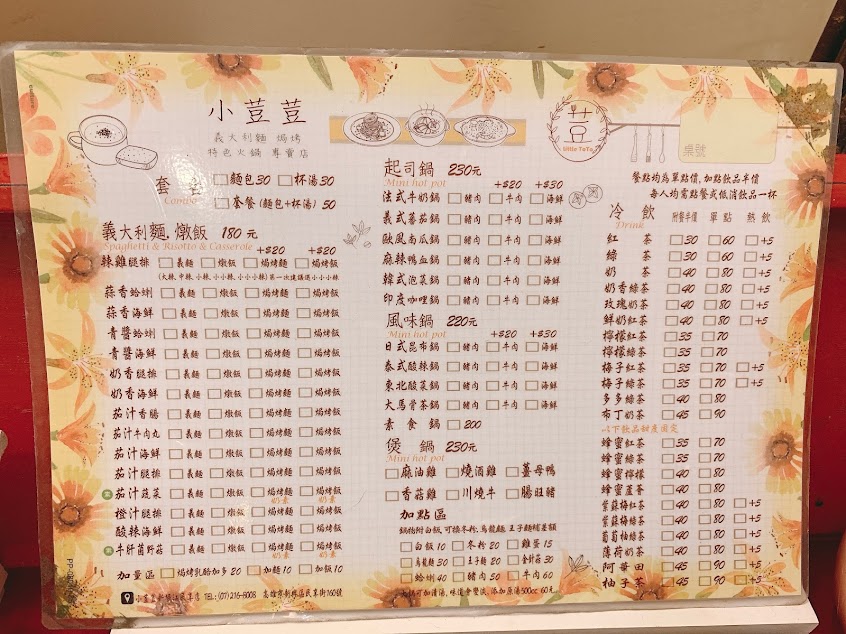 小荳荳
義大利麵 焗烤
特色火鍋 專賣店
little ToTo
桌號
餐點均為單點價,加點飲品半價
每人均需點餐或低消飲品一杯
套 餐 □麵包30 □杯湯30
Combo □套餐(麵包+杯湯) 50
義大利麵.燉飯 180元
Spaghetti & Risotto & Casserole +$20 +$20
辣雞腿排 □義麵 □燉飯 □焗烤麵 □焗烤飯
(大辣,中辣,小辣,小小辣,小小小辣)第一次建議選小小小辣
蒜香蛤蜊 □義麵 □燉飯 □焗烤麵 □焗烤飯
蒜香海鮮 □義麵 □燉飯 □焗烤麵 □焗烤飯
青醬蛤蜊 □義麵 □燉飯 □焗烤麵 □焗烤飯
青醬海鮮 □義麵 □燉飯 □焗烤麵 □焗烤飯
奶香雞腿排 □義麵 □燉飯 □焗烤麵 □焗烤飯
奶香海鮮 □義麵 □燉飯 □焗烤麵 □焗烤飯
茄汁香腸 □義麵 □燉飯 □焗烤麵 □焗烤飯
茄汁牛肉丸 □義麵 □燉飯 □焗烤麵 □焗烤飯
茄汁海鮮 □義麵 □燉飯 □焗烤麵 □焗烤飯
茄汁腿排 □義麵 □燉飯 □焗烤麵 □焗烤飯
素 茄汁蔬菜 □義麵 □燉飯 □焗烤麵 □焗烤飯
奶素 奶素
橙汁腿排 □義麵 □燉飯 □焗烤麵 □焗烤飯
酸辣海鮮 □義麵 □燉飯 □焗烤麵 □焗烤飯
素 牛肝菌野菇 □義麵 □燉飯 □焗烤麵 □焗烤飯
奶素 奶素
加量區 □焗烤乳酪加多20 □加麵10 □加飯10
TEL:(07)216-8008 高雄市新興區民享街160號
起司鍋 230元
Mini hot pot +$20 +$30
法式牛奶鍋 □豬肉 □牛肉 □海鮮
義式蕃茄鍋 □豬肉 □牛肉 □海鮮
歐風南瓜鍋 □豬肉 □牛肉 □海鮮
麻辣鴨血鍋 □豬肉 □牛肉 □海鮮
韓式泡菜鍋 □豬肉 □牛肉 □海鮮
印度咖哩鍋 □豬肉 □牛肉 □海鮮
風味鍋 220元
Mini hot pot +$20 +$30
日式昆布鍋 □豬肉 □牛肉 □海鮮
泰式酸辣鍋 □豬肉 □牛肉 □海鮮
東北酸菜鍋 □豬肉 □牛肉 □海鮮
大馬骨茶鍋 □豬肉 □牛肉 □海鮮
素食鍋 □200
煲 鍋 230元
Mini hot pot
□麻油雞 □燒酒雞 □薑母鴨
□香菇雞 □川燒牛 □腸旺豬
加點區
鍋物附白飯,可換冬粉,烏龍麵 王子麵補差額
□白飯10 □冬粉20 □雞蛋15
□烏龍麵30 □王子麵20 □金針菇30
□蛤蜊40 □豬肉50 □牛肉60
火鍋可加清湯,味道會變淡,添加原湯500cc 60元
冷 飲 附餐半價 單點 熱飲
Drink
紅茶 □30 □60 □+5
綠茶 □30 □60 □+5
奶茶 □40 □80 □+5
奶香綠茶 □40 □80 □+5
玫瑰奶茶 □40 □80 □+5
鮮奶紅茶 □40 □80 □+5
檸檬紅茶 □35 □70
檸檬綠茶 □35 □70
梅子紅茶 □35 □70 □+5
梅子綠茶 □35 □70 □+5
多多綠茶 □40 □80
布丁奶茶 □45 □90
以下飲品甜度固定
蜂蜜紅茶 □35 □70
蜂蜜綠茶 □35 □70
蜂蜜檸檬 □40 □80
蜂蜜蘆薈 □40 □80
紫蘇梅紅茶 □40 □80 □+5
紫蘇梅綠茶 □40 □80 □+5
葡萄柚綠茶 □40 □80 □+5
薄荷奶茶 □40 □80 □+5
阿華田 □45 □90 □+5
柚子茶 □45 □90 □+5